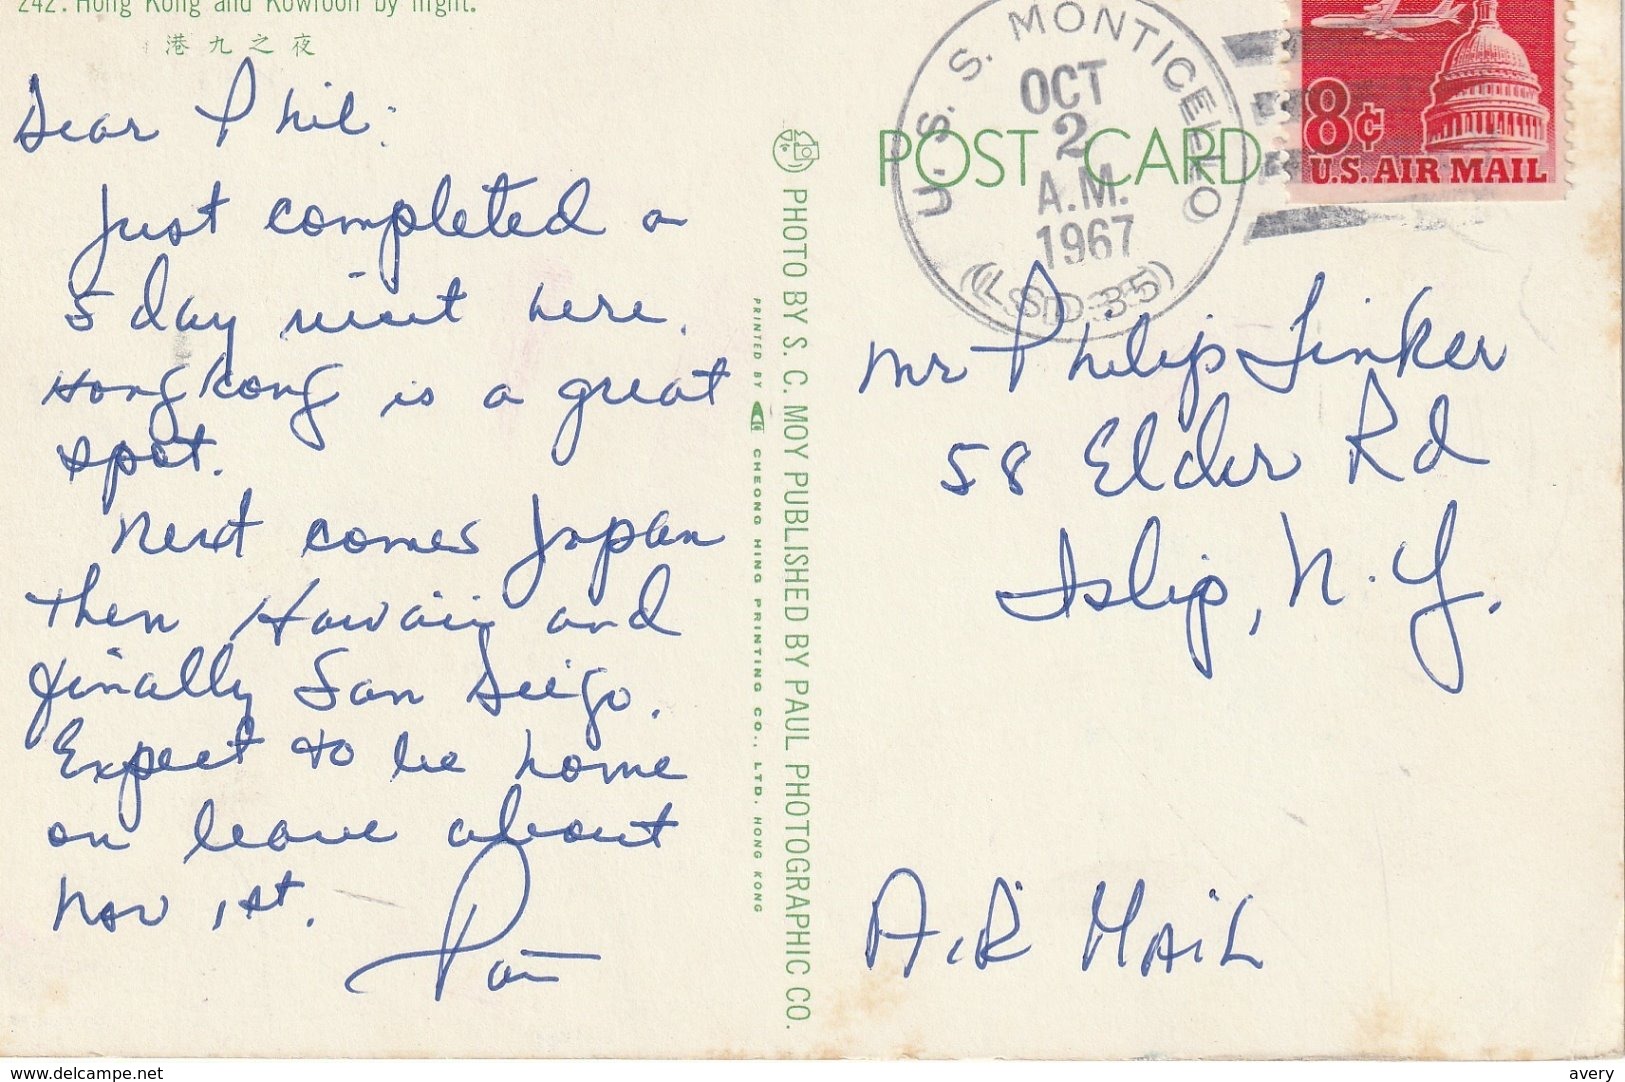 242. Hong Kong and Kowloon by night.
港九之夜
Dear Phil:
Just completed a
5 day visit here.
Hong Kong is a great
spot.
Next comes Japan
then Hawaii and
finally San Diego.
Expect to be home
on leave about
Nov 1st.
PHOTO BY S. C. MOY PUBLISHED BY PAUL PHOTOGRAPHIC CO.
PRINTED BY CHEONG HING PRINTING CO., LTD. HONG KONG
POST CARD
U.S.S. MONTICELLO
OCT
2
A.M.
1967
(LSD-35)
8¢
U.S. AIR MAIL
Mr Philip Linker
58 Elder Rd
Islip, N.Y.
AiR MAiL
delcampe.net
avery